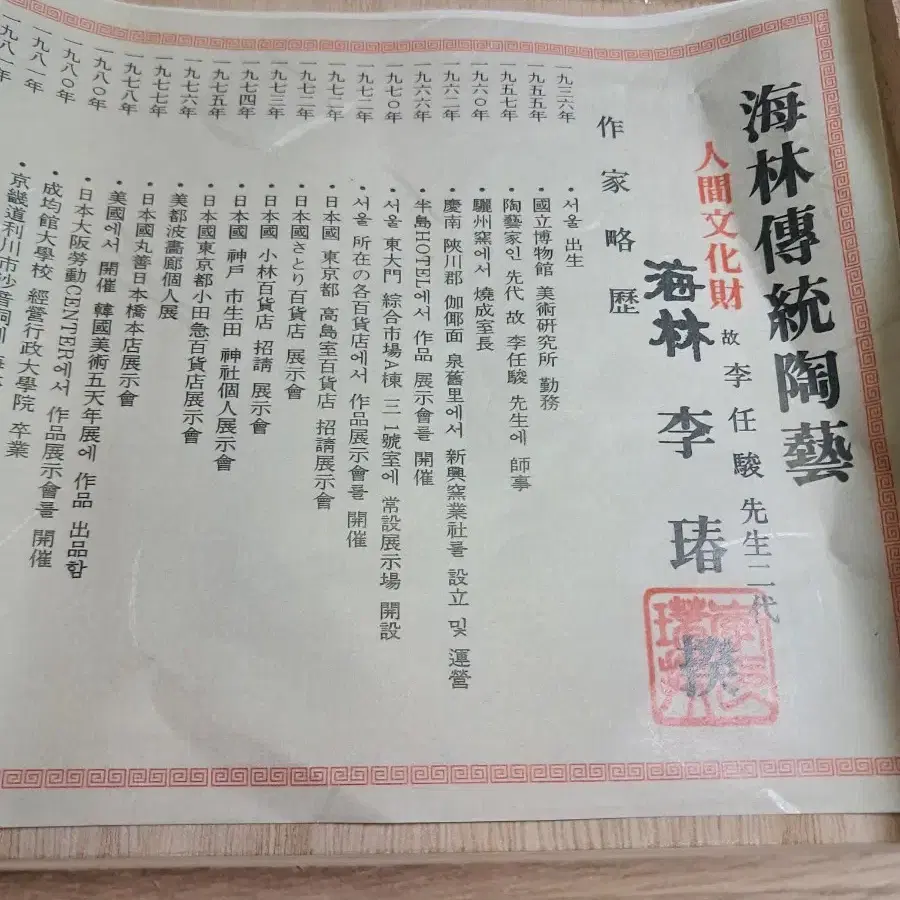 海林傳統陶藝
人間文化財 故 李任駿先生二代
海林 李 瑃
作家略歷
一九三六年 • 서울 出生
一九五五年 • 國立博物館 美術硏究所 勤務
一九五七年 • 陶藝家인 先代 故 李任駿 先生에 師事
一九六〇年 • 驪州窯에서 燒成室長
一九六二年 • 慶南 陜川郡 伽倻面 泉舊里에서 新興窯業社를 設立 및 運營
一九六六年 • 半島HOTEL에서 作品 展示會를 開催
一九七〇年 • 서울 東大門 綜合市場A棟 三一號室에 常設展示場 開設
一九七二年 • 서울 所在의 各百貨店에서 作品展示會를 開催
一九七二年 • 日本國 東京都 高島室百貨店 招請展示會
一九七二年 • 日本國さとり百貨店 展示會
一九七三年 • 日本國 小林百貨店 招請 展示會
一九七四年 • 日本國 神戶 市生田 神社個人展示會
一九七五年 • 日本國東京都小田急百貨店展示會
一九七六年 • 美都波畵廊個人展
一九七七年 • 日本國丸善日本橋本店展示會
一九七八年 • 美國에서 開催 韓國美術五天年展에 作品 出品함
一九八〇年 • 日本大阪勞動CENTER에서 作品展示會를 開催
一九八〇年 • 成均館大學校 經營行政大學院 卒業
一九八一年 • 京畿道利川市沙音洞에
一九八一年